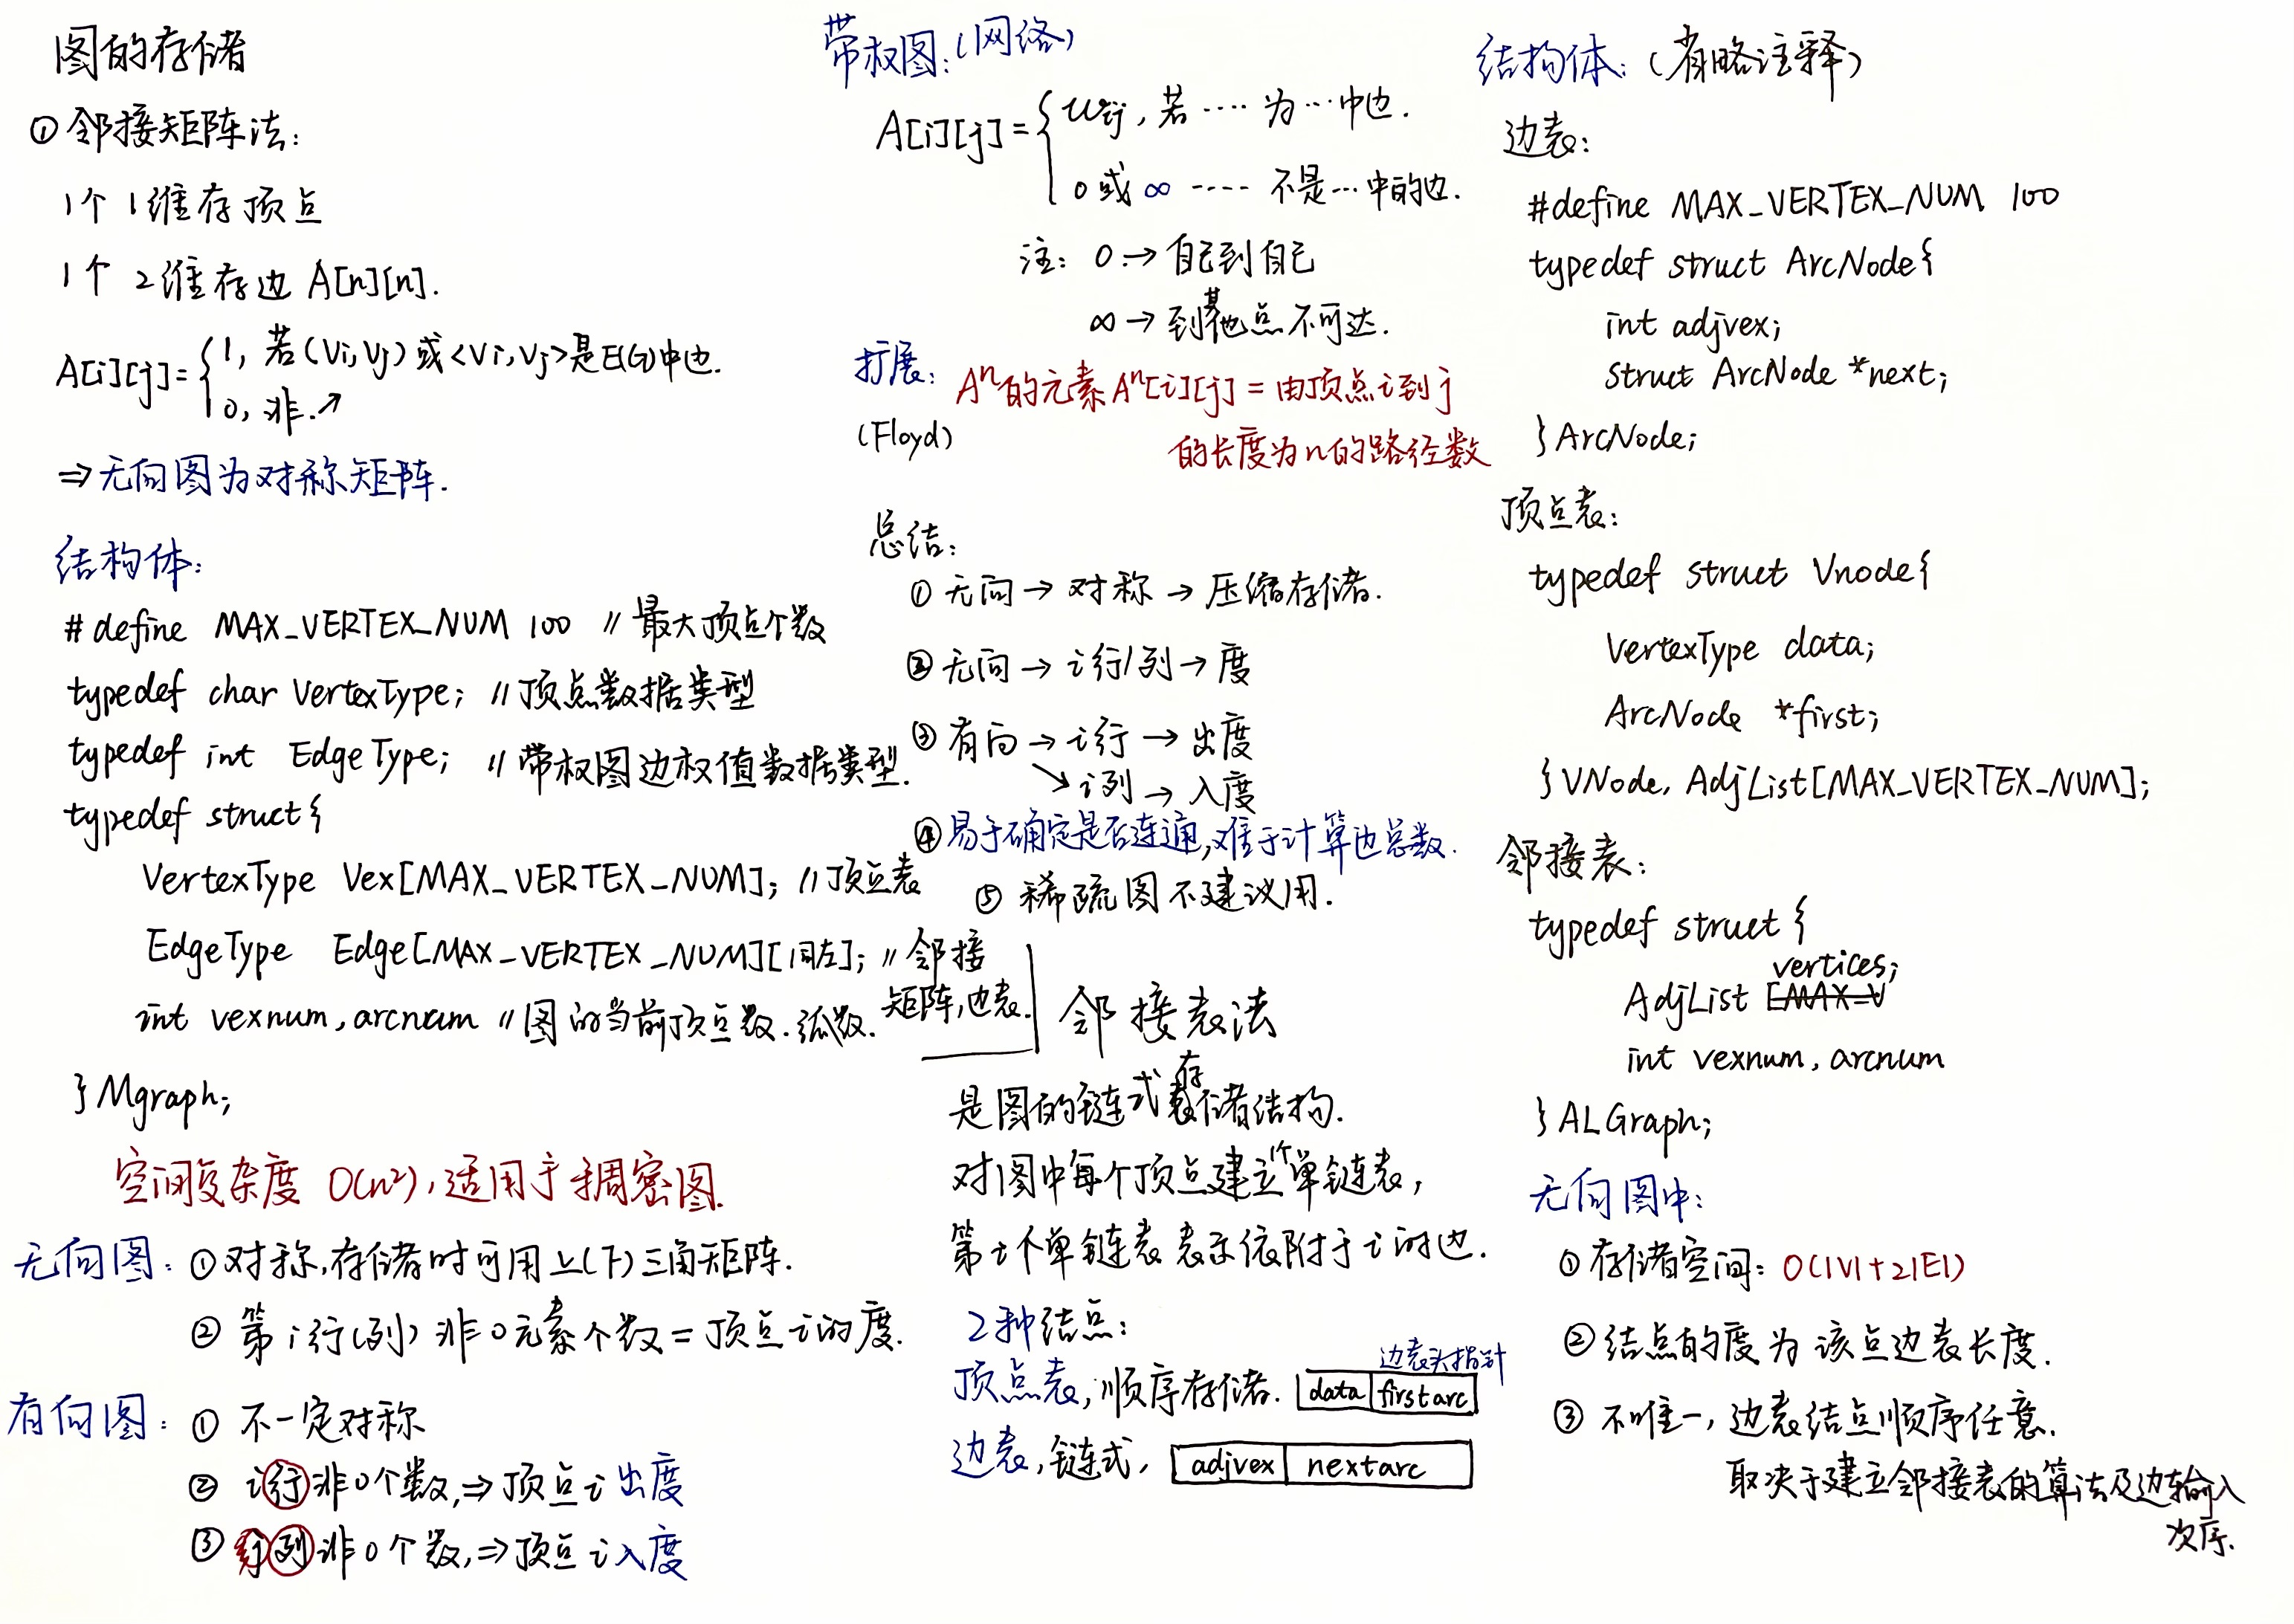 图的存储
① 邻接矩阵法：
1个 1维存顶点
1个 2维存边 A[n][n].
A[i][j]= { 1, 若(Vi,Vj)或<Vi,Vj>是E(G)中边.
0, 非.↗
⇒ 无向图为对称矩阵.
结构体：
#define MAX_VERTEX_NUM 100 // 最大顶点个数
typedef char VertexType; // 顶点数据类型
typedef int EdgeType; // 带权图边权值数据类型.
typedef struct{
VertexType Vex[MAX_VERTEX_NUM]; // 顶点表
EdgeType Edge[MAX_VERTEX_NUM][同左]; // 邻接
矩阵,边表.
int vexnum, arcnum // 图的当前顶点数.弧数.
}Mgraph;
空间复杂度 O(n²), 适用于稠密图.
无向图：① 对称,存储时可用上(下)三角矩阵.
② 第i行(列) 非0元素个数 = 顶点i的度.
有向图：① 不一定对称
② i行非0个数,⇒顶点i出度
③ 列非0个数,⇒顶点i入度
带权图：(网络)
A[i][j]= { wij, 若 ···· 为 ··· 中边.
0或∞ ---- 不是 ··· 中的边.
注：0 → 自己到自己
∞ → 到其他点不可达.
扩展：Aⁿ的元素Aⁿ[i][j] = 由顶点i到j
(Floyd)
的长度为n的路径数
总结：
① 无向 → 对称 → 压缩存储.
② 无向 → i行/列 → 度
③ 有向 → i行 → 出度
↘ i列 → 入度
④ 易于确定是否连通,难于计算边总数.
⑤ 稀疏图不建议用.
邻接表法
是图的链式存储结构.
对图中每个顶点建立个单链表,
第i个单链表表示依附于i的边.
2种结点：
边表头指针
顶点表,顺序存储. data firstarc
边表,链式, adjvex nextarc
结构体：(省略注释)
边表：
#define MAX_VERTEX_NUM 100
typedef struct ArcNode{
int adjvex;
struct ArcNode *next;
}ArcNode;
顶点表：
typedef struct Vnode{
VertexType data;
ArcNode *first;
}VNode, AdjList[MAX_VERTEX_NUM];
邻接表：
typedef struct {
vertices;
AdjList [MAX_V
int vexnum, arcnum
}ALGraph;
无向图中：
① 存储空间：O(|V|+2|E|)
② 结点的度为该点边表长度.
③ 不唯一, 边表结点顺序任意.
取决于建立邻接表的算法及边输入
次序.